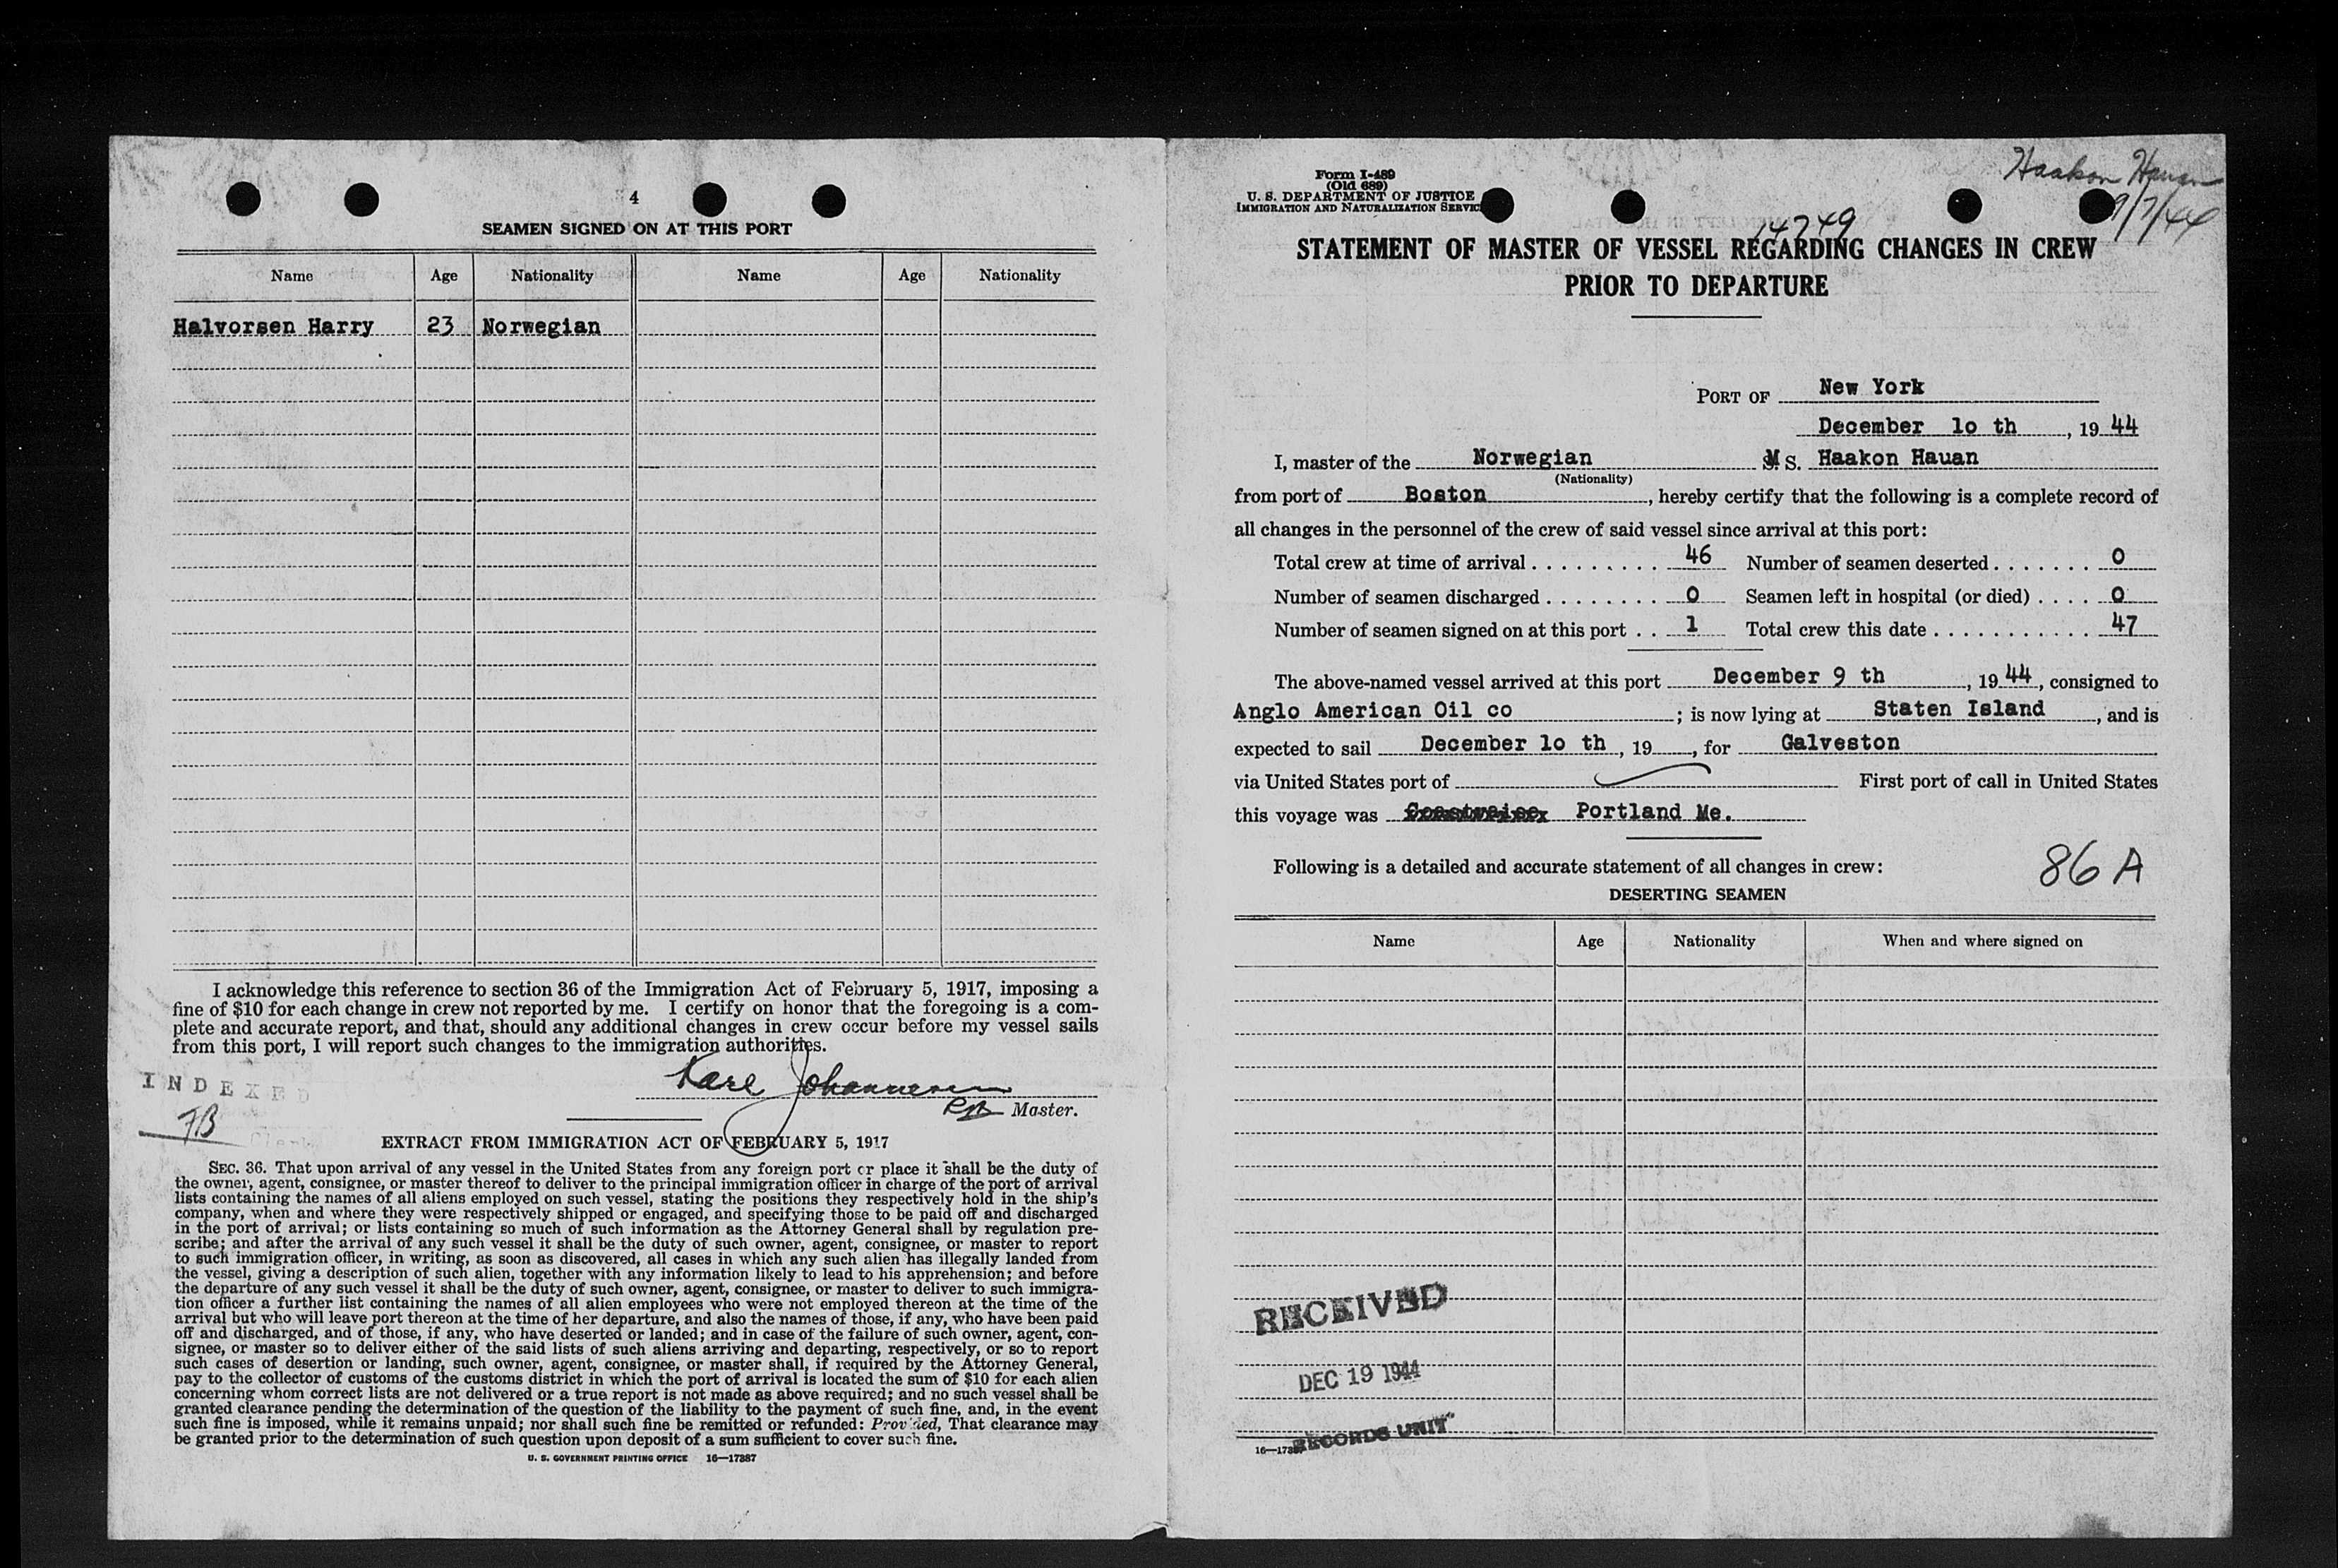 4
SEAMEN SIGNED ON AT THIS PORT
Name Age Nationality Name Age Nationality
Halvorsen Harry 23 Norwegian
I acknowledge this reference to section 36 of the Immigration Act of February 5, 1917, imposing a
fine of $10 for each change in crew not reported by me. I certify on honor that the foregoing is a com-
plete and accurate report, and that, should any additional changes in crew occur before my vessel sails
from this port, I will report such changes to the immigration authorities.
Kare Johannesen
Master.
INDEXED
FB
Clerk
EXTRACT FROM IMMIGRATION ACT OF FEBRUARY 5, 1917
SEC. 36. That upon arrival of any vessel in the United States from any foreign port or place it shall be the duty of
the owner, agent, consignee, or master thereof to deliver to the principal immigration officer in charge of the port of arrival
lists containing the names of all aliens employed on such vessel, stating the positions they respectively hold in the ship's
company, when and where they were respectively shipped or engaged, and specifying those to be paid off and discharged
in the port of arrival; or lists containing so much of such information as the Attorney General shall by regulation pre-
scribe; and after the arrival of any such vessel it shall be the duty of such owner, agent, consignee, or master to report
to such immigration officer, in writing, as soon as discovered, all cases in which any such alien has illegally landed from
the vessel, giving a description of such alien, together with any information likely to lead to his apprehension; and before
the departure of any such vessel it shall be the duty of such owner, agent, consignee, or master to deliver to such immigra-
tion officer a further list containing the names of all alien employees who were not employed thereon at the time of the
arrival but who will leave port thereon at the time of her departure, and also the names of those, if any, who have been paid
off and discharged, and of those, if any, who have deserted or landed; and in case of the failure of such owner, agent, con-
signee, or master so to deliver either of the said lists of such aliens arriving and departing, respectively, or so to report
such cases of desertion or landing, such owner, agent, consignee, or master shall, if required by the Attorney General,
pay to the collector of customs of the customs district in which the port of arrival is located the sum of $10 for each alien
concerning whom correct lists are not delivered or a true report is not made as above required; and no such vessel shall be
granted clearance pending the determination of the question of the liability to the payment of such fine, and, in the event
such fine is imposed, while it remains unpaid; nor shall such fine be remitted or refunded: Provided, That clearance may
be granted prior to the determination of such question upon deposit of a sum sufficient to cover such fine.
U. S. GOVERNMENT PRINTING OFFICE 16—17387
Form I-489
(Old 689)
U. S. DEPARTMENT OF JUSTICE
IMMIGRATION AND NATURALIZATION SERVICE
Haakon Hauan
9/7/44
14749
STATEMENT OF MASTER OF VESSEL REGARDING CHANGES IN CREW
PRIOR TO DEPARTURE
PORT OF New York
December 1o th, 19 44
I, master of the Norwegian M S. Haakon Hauan
(Nationality)
from port of Boston, hereby certify that the following is a complete record of
all changes in the personnel of the crew of said vessel since arrival at this port:
Total crew at time of arrival . . . . . . . . . 46 Number of seamen deserted . . . . . . . 0
Number of seamen discharged . . . . . . . . 0 Seamen left in hospital (or died) . . . . 0
Number of seamen signed on at this port . . 1 Total crew this date . . . . . . . . . . . 47
The above-named vessel arrived at this port December 9 th, 19 44, consigned to
Anglo American Oil co; is now lying at Staten Island, and is
expected to sail December 1o th, 19, for Galveston
via United States port of First port of call in United States
this voyage was Coastwaise Portland Me.
Following is a detailed and accurate statement of all changes in crew:
86 A
DESERTING SEAMEN
Name Age Nationality When and where signed on
RECEIVED
DEC 19 1944
RECORDS UNIT
16—17387